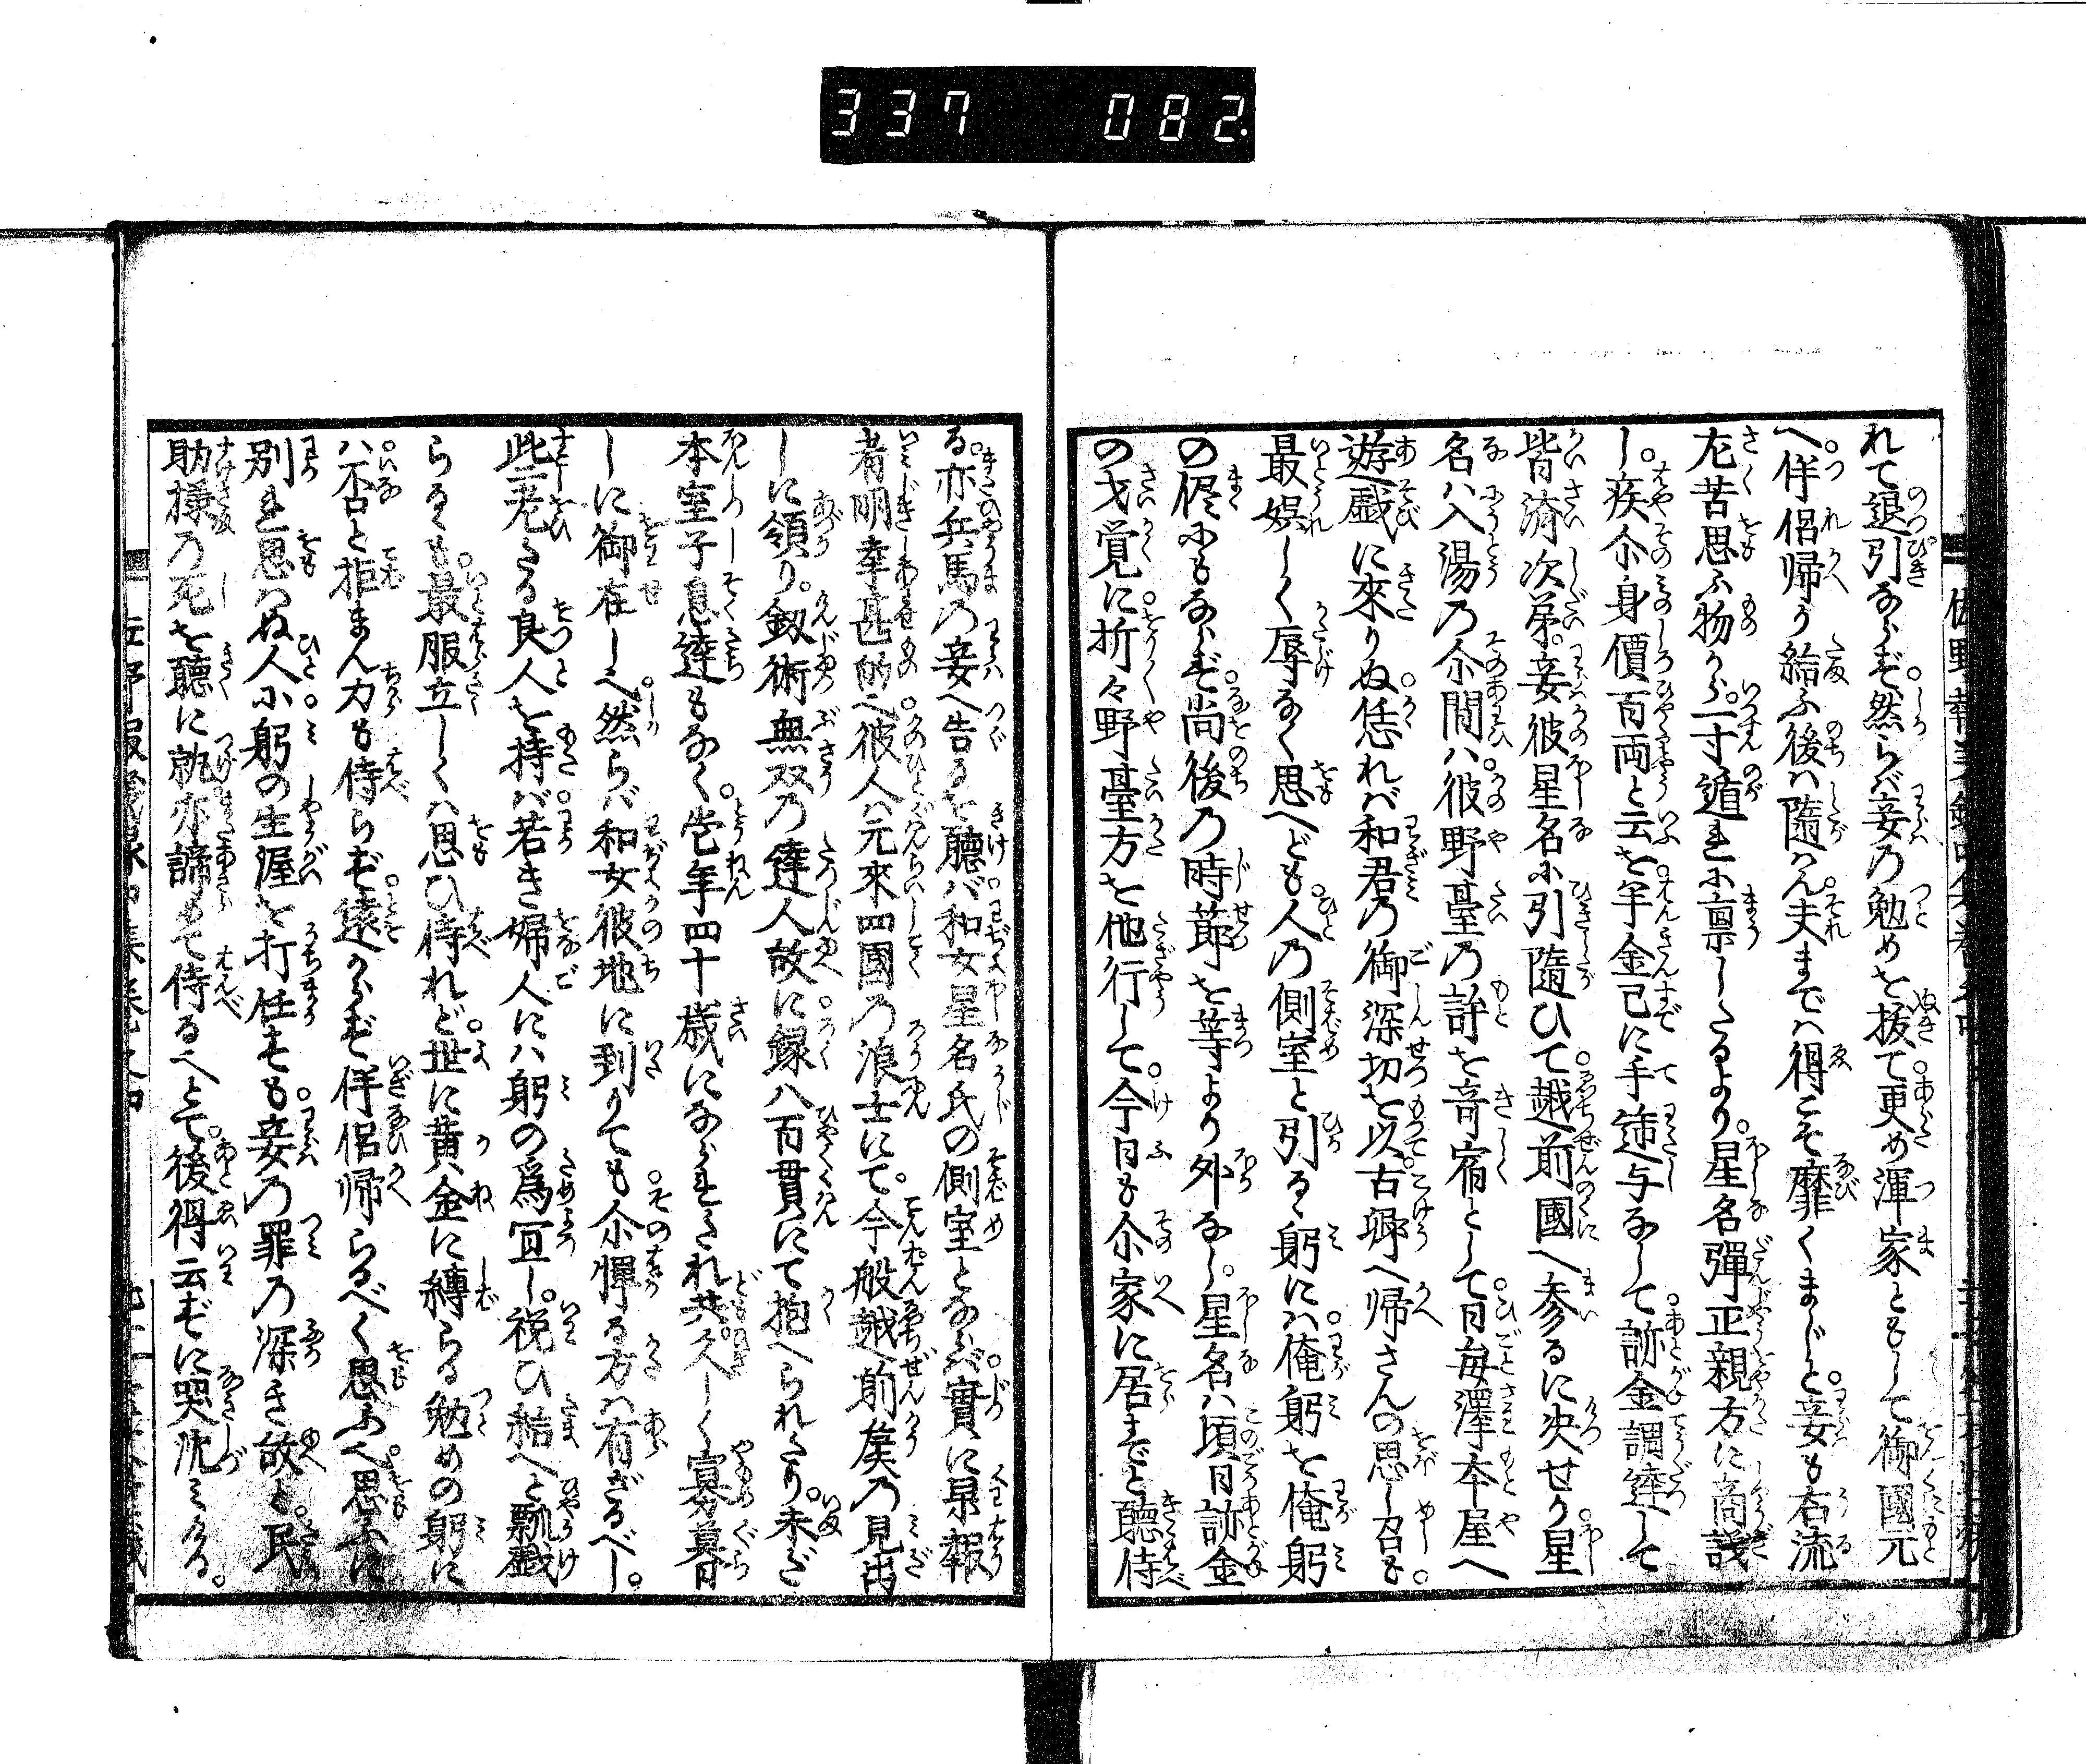 337 082.
れて退引ならず。然らば妾の勉めを抜て。更め渾家ともして御國元
へ。伴侶帰り給ふ後は隨はん。夫までは得こそ靡くまじと。妾も右流
左苦思ふ物から。一寸遁れに禀したるより。星名彈正親方に商議
し。疾尒身價百両と云を。半金已に手逓与なして。跡金調達して
皆済次第。妾彼星名に引隨ひて。越前國へ参るに决せり。星
名は入湯の尒間は。彼野臺の許を竒宿として。日毎澤本屋へ
遊戯に來りぬ。恁れば和君の御深切を以。古郷へ帰さんの思し召も。
最娯しく辱なく思へども。人の側室と引るゝ躬には。俺躬を俺躬
の儘にもならず。尚後の時莭を等より外なし。星名は頃日跡金
の才覚に。折々野臺方を他行して。今日も尒家に居までと聽侍
る。亦兵馬の妾へ告るを聽ば。和女星名氏の側室とならば。實に杲報
者。明幸甚的也。彼人は元來四國の浪士にて。今般越前矦の見出
しに領り。釼術無双の達人故に。録八百貫にて抱へられたり。未だ
本室子息達もなく。當年四十歳になられたれ共。久しく寡暮
しに御在しゝ。然らば和女彼地に到りても。尒憚る方は有ざるべし。
些老たる良人を持ば。若き婦人には躬の爲宜し。祝ひ給へと瓢戯
らるゝも。最服立しくは思ひ侍れど。世に黄金に縛らる勉めの躬に
は。否と拒まん力も侍らず。遠からず伴侶帰らるべく思ふ也。思ふに
別れ思はぬ人に。躬の生涯を打任すも。妾の罪の深き故と。民
助様の死を聽に就。亦諦めて侍る也とて。後得云ずに哭沈みける。